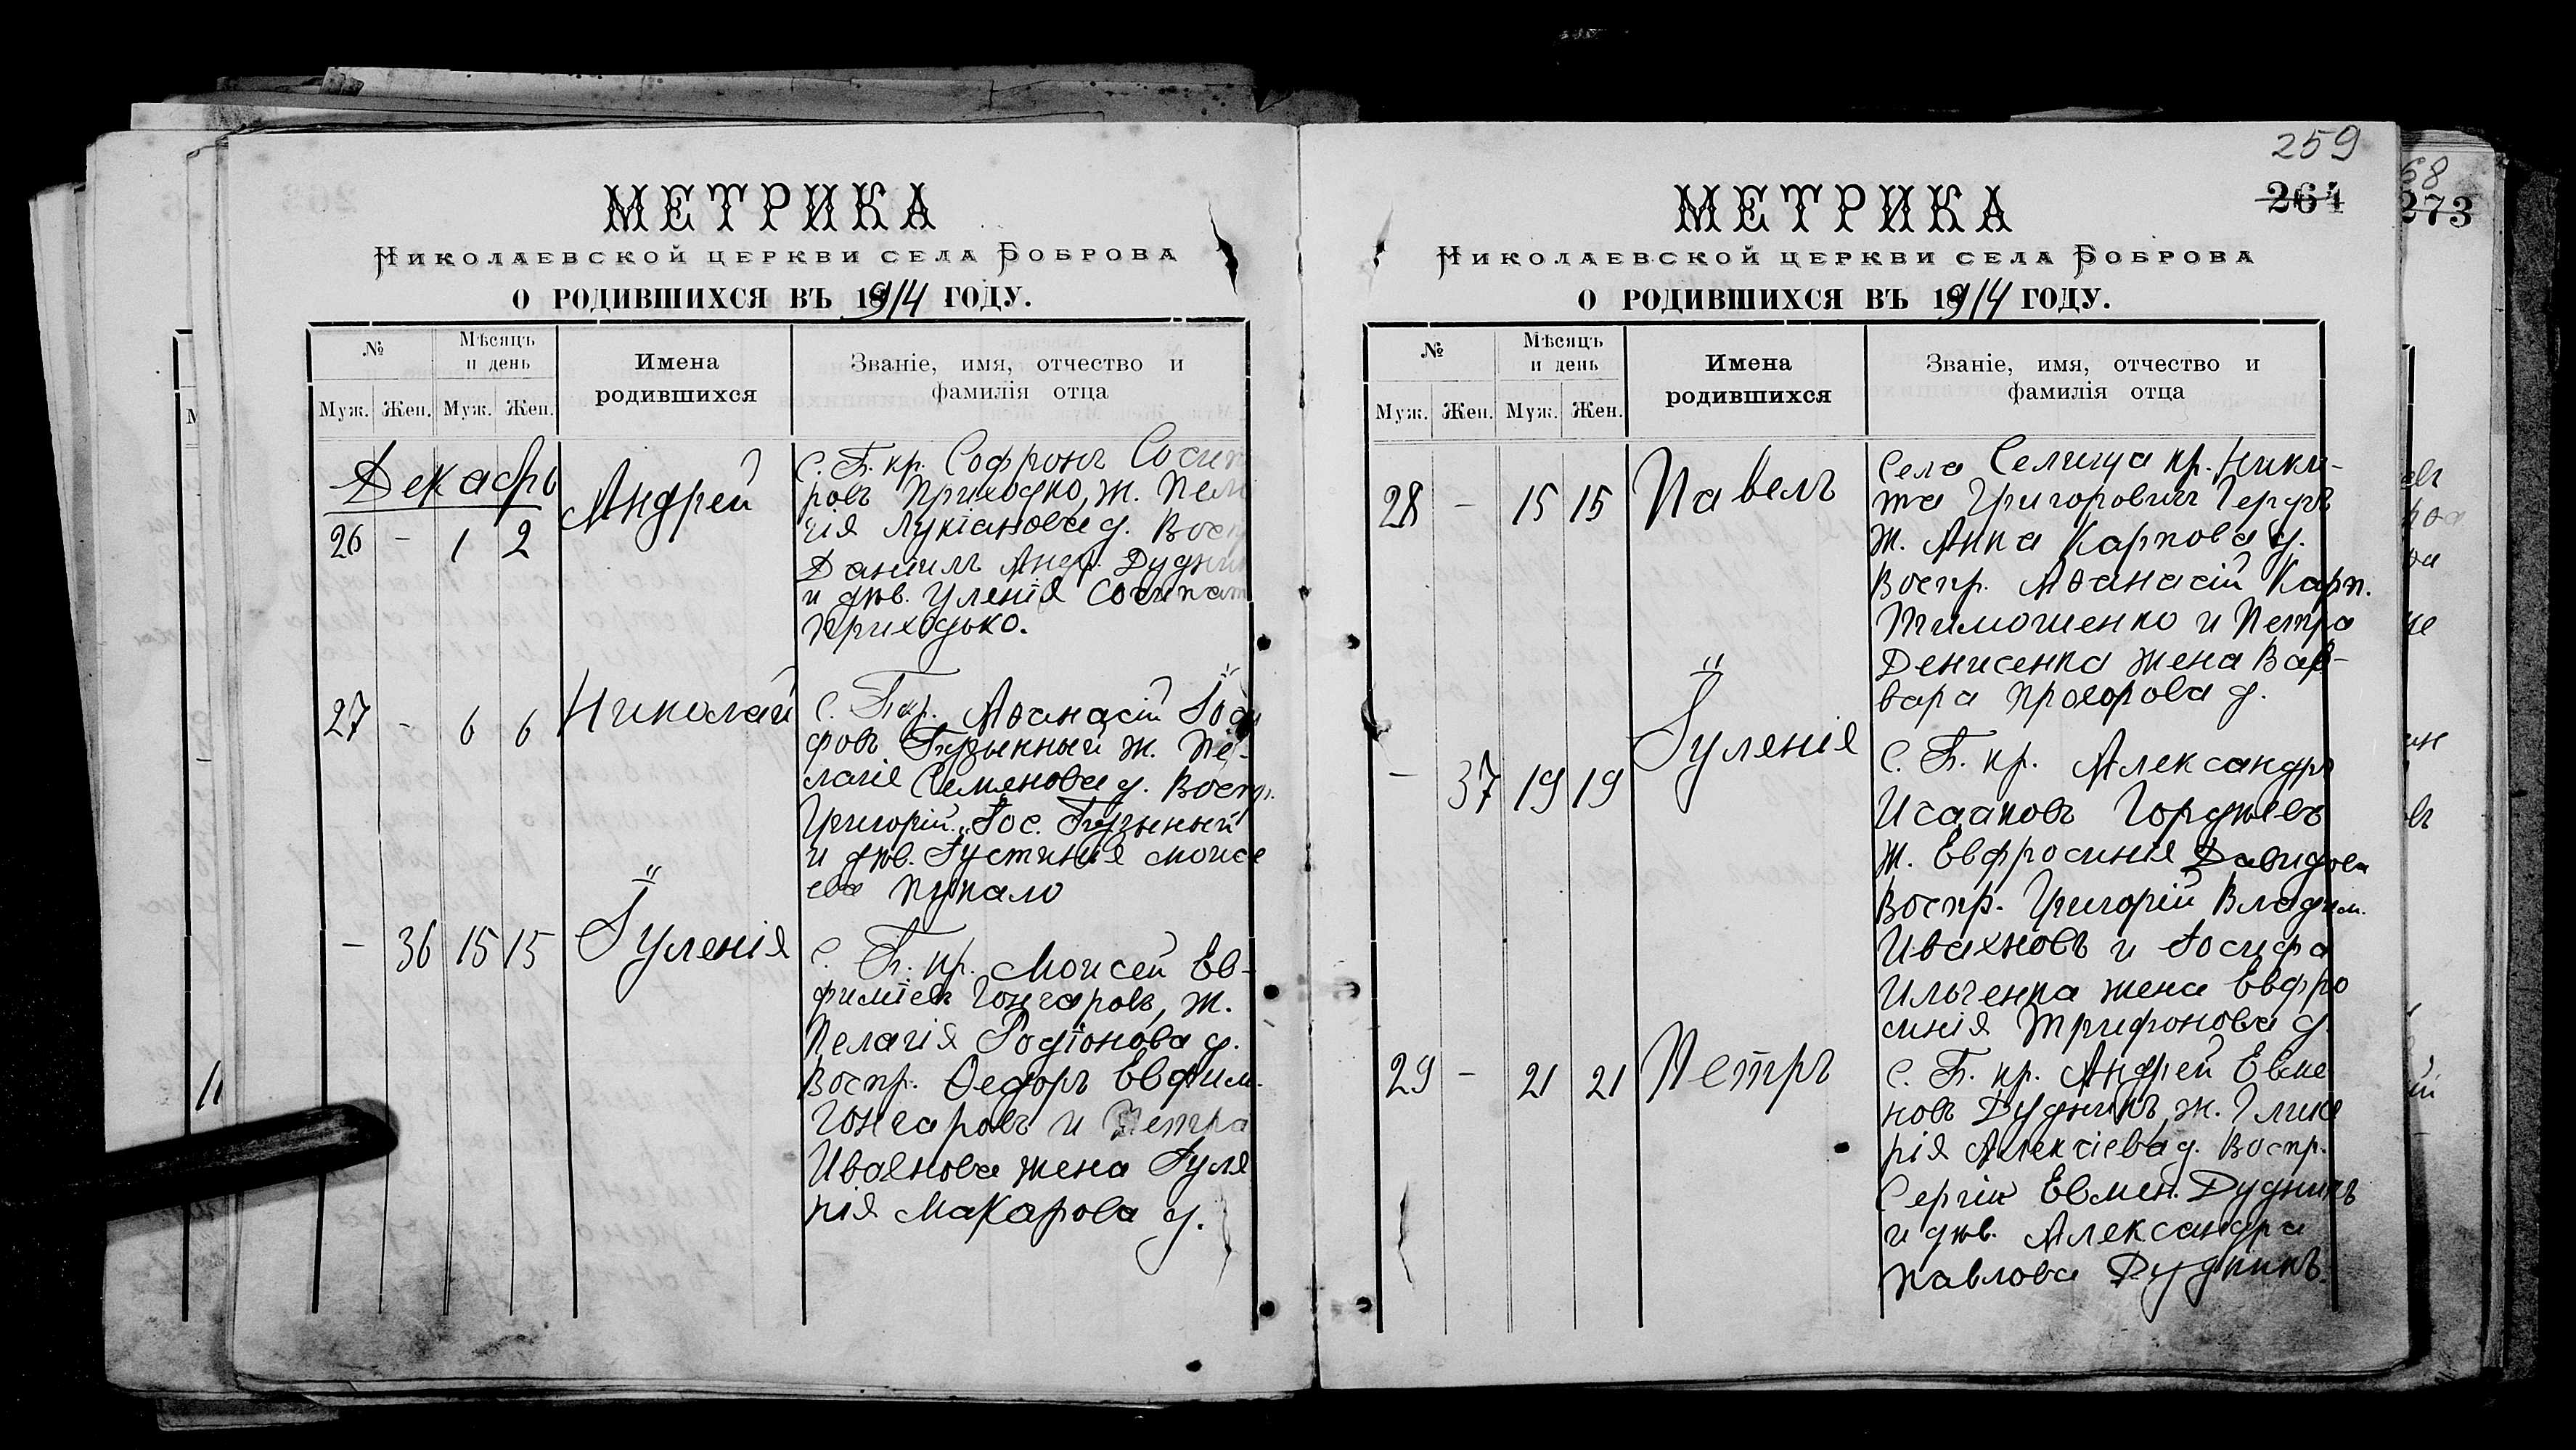 МЕТРИКА
НИКОЛАЕВСКОЙ ЦЕРКВИ СЕЛА БОБРОВА
О РОДИВШИХСЯ ВЪ 1914 ГОДУ.
№
Мѣсяцъ и день
Имена родившихся
Званіе, имя, отчество и фамилія отца
Муж. Жен. Муж. Жен.
Декабрь
26 - 1 2
Андрей
С. Б. кр. Софронъ
ровъ Приходко, ж.
гія Лукіанова д.
Даниилъ Андр.
и дѣв. Уленія
Приходько.
27 - 6 6
Николай
С. Б. кр. Аѳанасій
фовъ ж. Пе-
лагія Семенова д. Воспр.
Григорій Іос.
и дѣв. Іустинія Моисе
ева Пупало
- 36 15 15
Іуленія
С. Б. кр. Моисей Ев-
фиміевъ Гончаровъ, ж.
Пелагія Родіонова д.
Воспр. Ѳедоръ Евфим.
Гончаровъ и Петра
Иванова жена Іуле
нія Макарова д.
259
264
МЕТРИКА
НИКОЛАЕВСКОЙ ЦЕРКВИ СЕЛА БОБРОВА
О РОДИВШИХСЯ ВЪ 1914 ГОДУ.
№
Мѣсяцъ и день
Имена родившихся
Званіе, имя, отчество и фамилія отца
Муж. Жен. Муж. Жен.
28 - 15 15
Павелъ
Села Селища кр. Ники-
та Григоровичъ
ж. Анна Карпова д.
Воспр. Аѳанасій Карп.
Тимошенко и Петра
Денисенка жена Вар-
вара Прохорова д.
- 37 19 19
Іуленія
С. Б. кр. Александръ
Исааковъ Гордѣевъ
ж. Евфросинія Давидова
Воспр. Григорій Владим.
Ивахновъ и Іосифа
Ильченка жена Евфро
синія Трифонова д.
29 - 21 21
Петръ
С. Б. кр. Андрей Евме
новъ Дудникъ, ж. Глике
рія Алексіева д. Воспр.
Сергій Евмен. Дудникъ
и дѣв. Александра
Павлова Дудникъ.
68
273